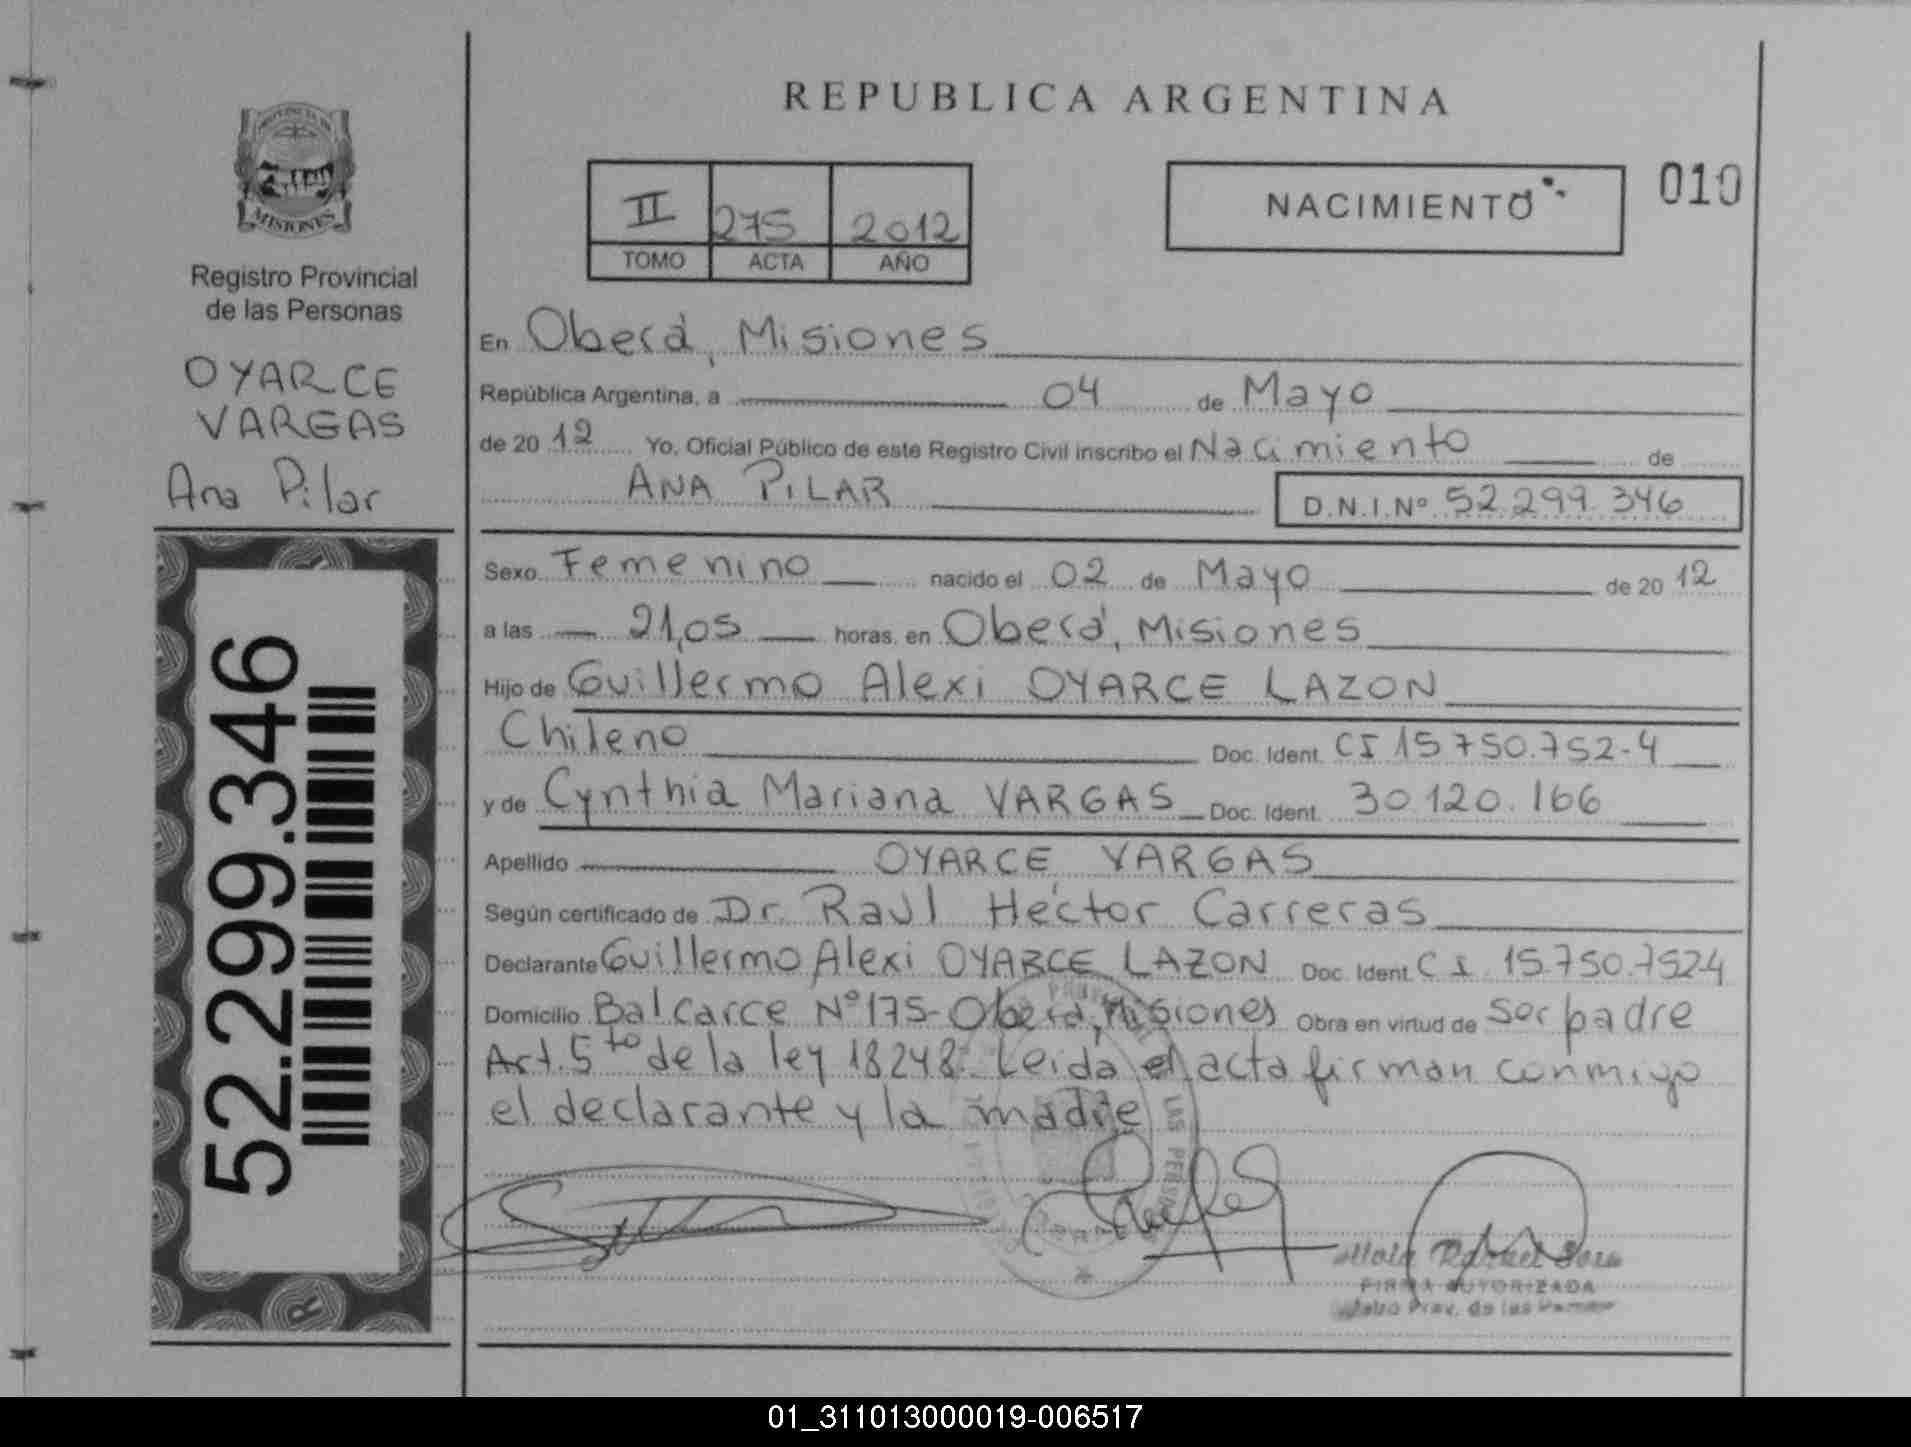 REPUBLICA ARGENTINA
PROVINCIA DE
MISIONES
Registro Provincial
de las Personas
OYARCE
VARGAS
Ana Pilar
52.299.346
R
II 275 2012
TOMO ACTA AÑO
NACIMIENTO
010
En Oberá, Misiones
República Argentina, a 04 de Mayo
de 20 12 Yo, Oficial Público de este Registro Civil inscribo el Nacimiento de
ANA PILAR D.N.I. Nº 52.299.346
Sexo Femenino nacido el 02 de Mayo de 20 12
a las 21,05 horas, en Oberá, Misiones
Hijo de Guillermo Alexi OYARCE LAZON
Chileno Doc. Ident. CI 15 750.752-4
y de Cynthia Mariana VARGAS Doc. Ident. 30.120.166
Apellido OYARCE VARGAS
Según certificado de Dr. Raul Héctor Carreras
Declarante Guillermo Alexi OYARCE LAZON Doc. Ident. C I 15.750.752-4
Domicilio Balcarce Nº 175- Oberá, Misiones Obra en virtud de ser padre
Art. 5to de la ley 18248. Leida el acta firman conmigo
el declarante y la madre
LAS PERSONAS
FIRMA AUTORIZADA
Prov. de las
01_311013000019-006517